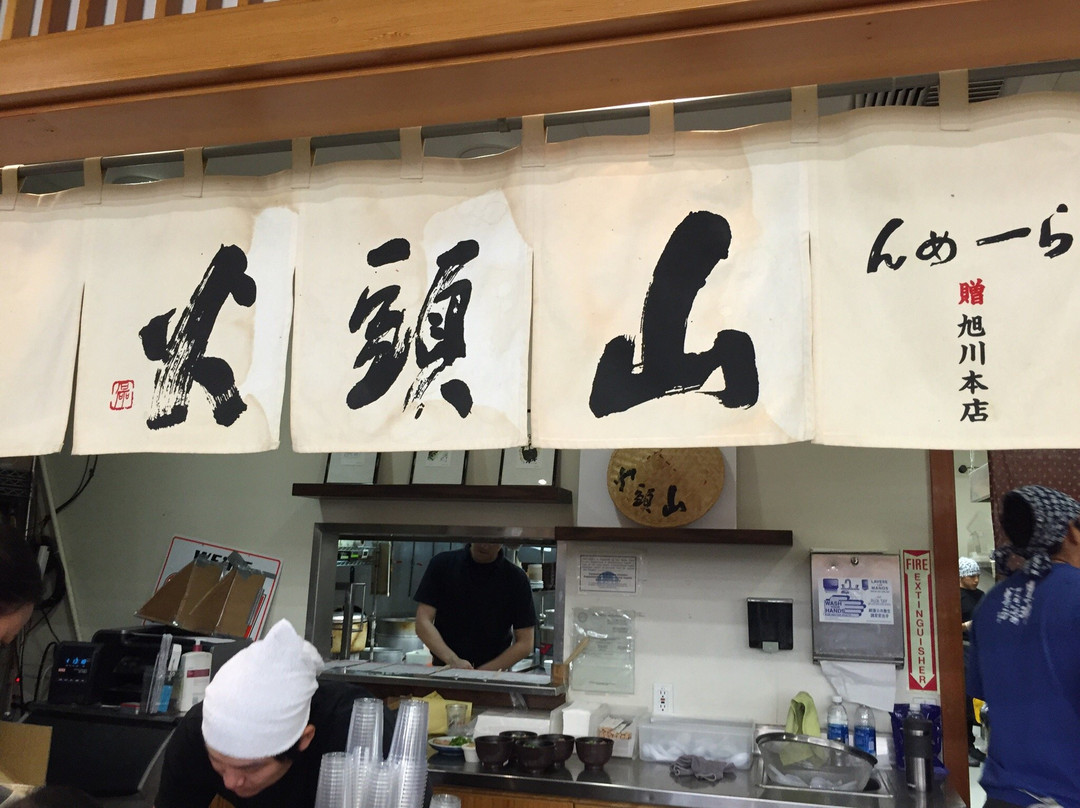 らーめん
贈 旭川本店
山頭火
山頭火
WASH
HANDS
FIRE EXTINGUISHER